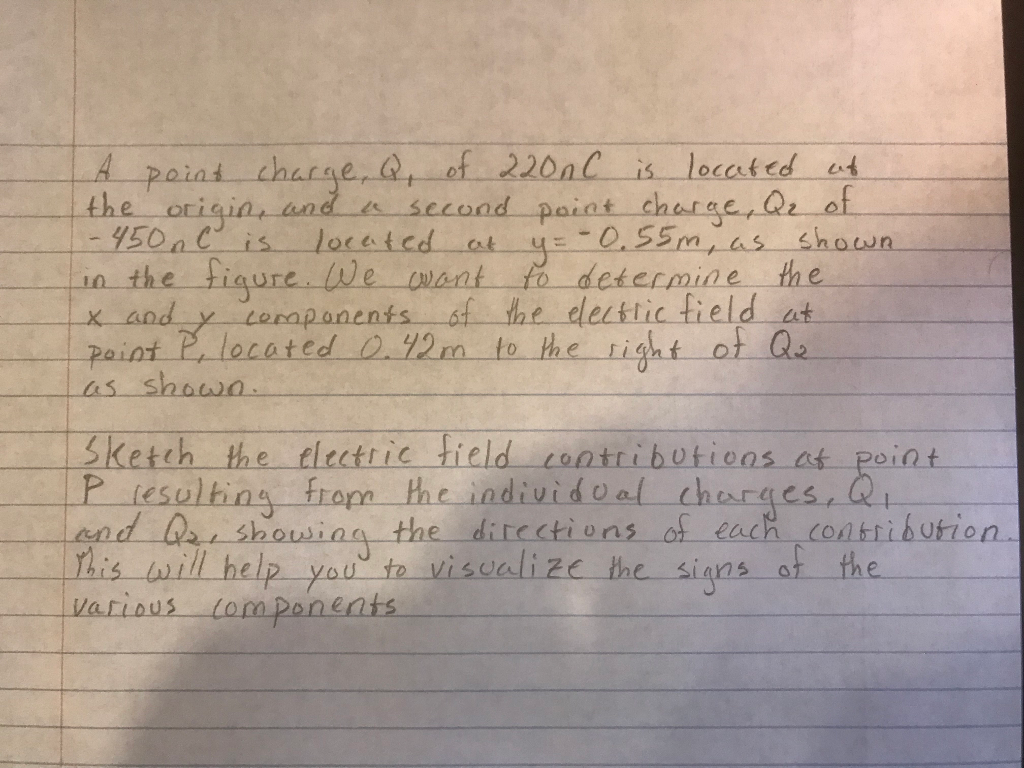 A point charge, Q₁ of 220nC is located at
the origin, and a second point charge, Q₂ of
-450nC is located at y=-0.55m, as shown
in the figure. We want to determine the
x and y components of the electric field at
point P, located 0.42m to the right of Q₂
as shown.
Sketch the electric field contributions at point
P resulting from the individual charges, Q₁
and Q₂, showing the directions of each contribution.
This will help you to visualize the signs of the
various components